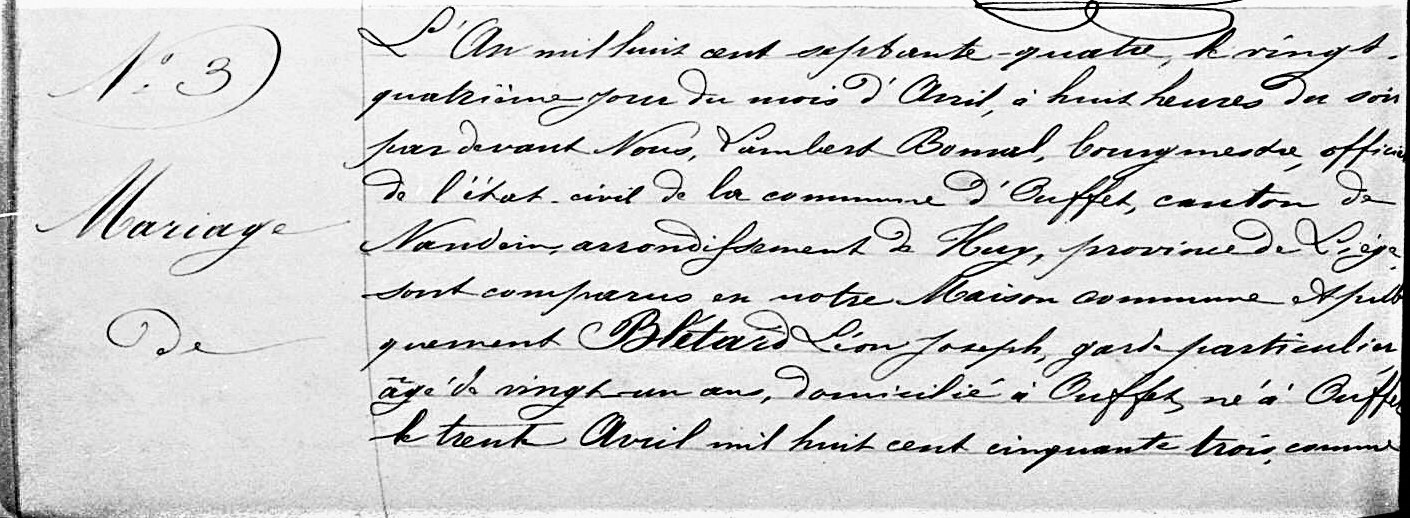 N.° 3
Mariage
de
L'An mil huit cent septante-quatre, le vingt-
quatrième jour du mois d'Avril, à huit heures du soir
par devant Nous, Lambert Bomal, bourgmestre, officier
de l'état-civil de la commune d'Ouffet, canton de
Nandrin, arrondissement de Huy, province de Liége,
sont comparus en notre Maison commune et publi
quement Blétard Léon Joseph, garde particulier
âgé de vingt-un ans, domicilié à Ouffet, né à Ouffet
le trente Avril mil huit cent cinquante trois, comme